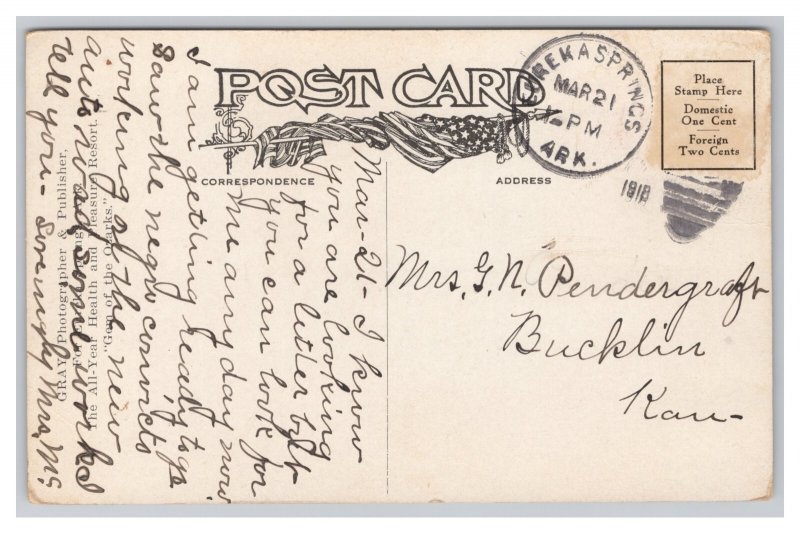 POST CARD
CORRESPONDENCE
ADDRESS
EUREKA SPRINGS
MAR 21
PM
ARK.
1918
Place
Stamp Here
Domestic
One Cent
Foreign
Two Cents
Mar-21- I know
you are looking
for a letter but
you can look for
Me any day now
I am getting ready to go
Saw the negro convicts
working on the new
auto road, some work I
tell you - Lovingly Mrs. Mc
Mrs. G. N. Pendergraft
Bucklin
Kan-
GRAY, Photographer & Publisher,
The All-Year Health and Pleasure Resort,
"Gem of the Ozarks."